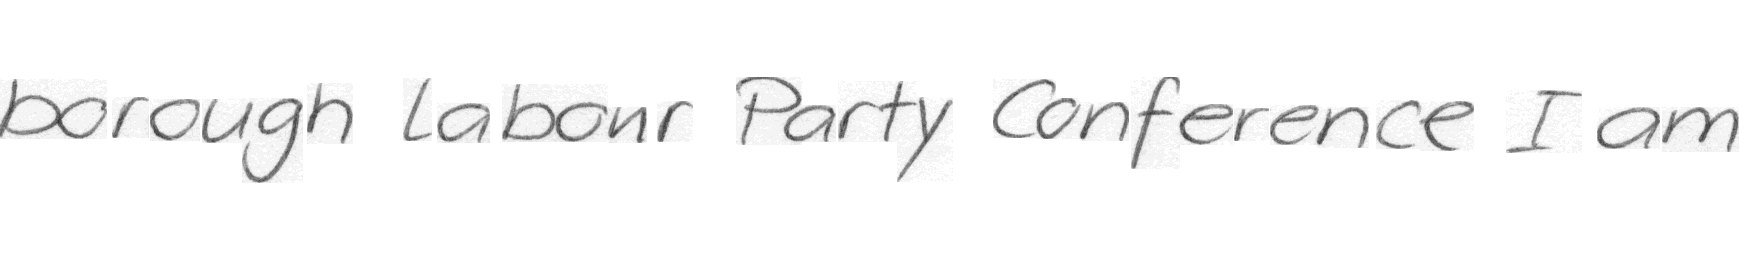 borough Labour Party Conference I am